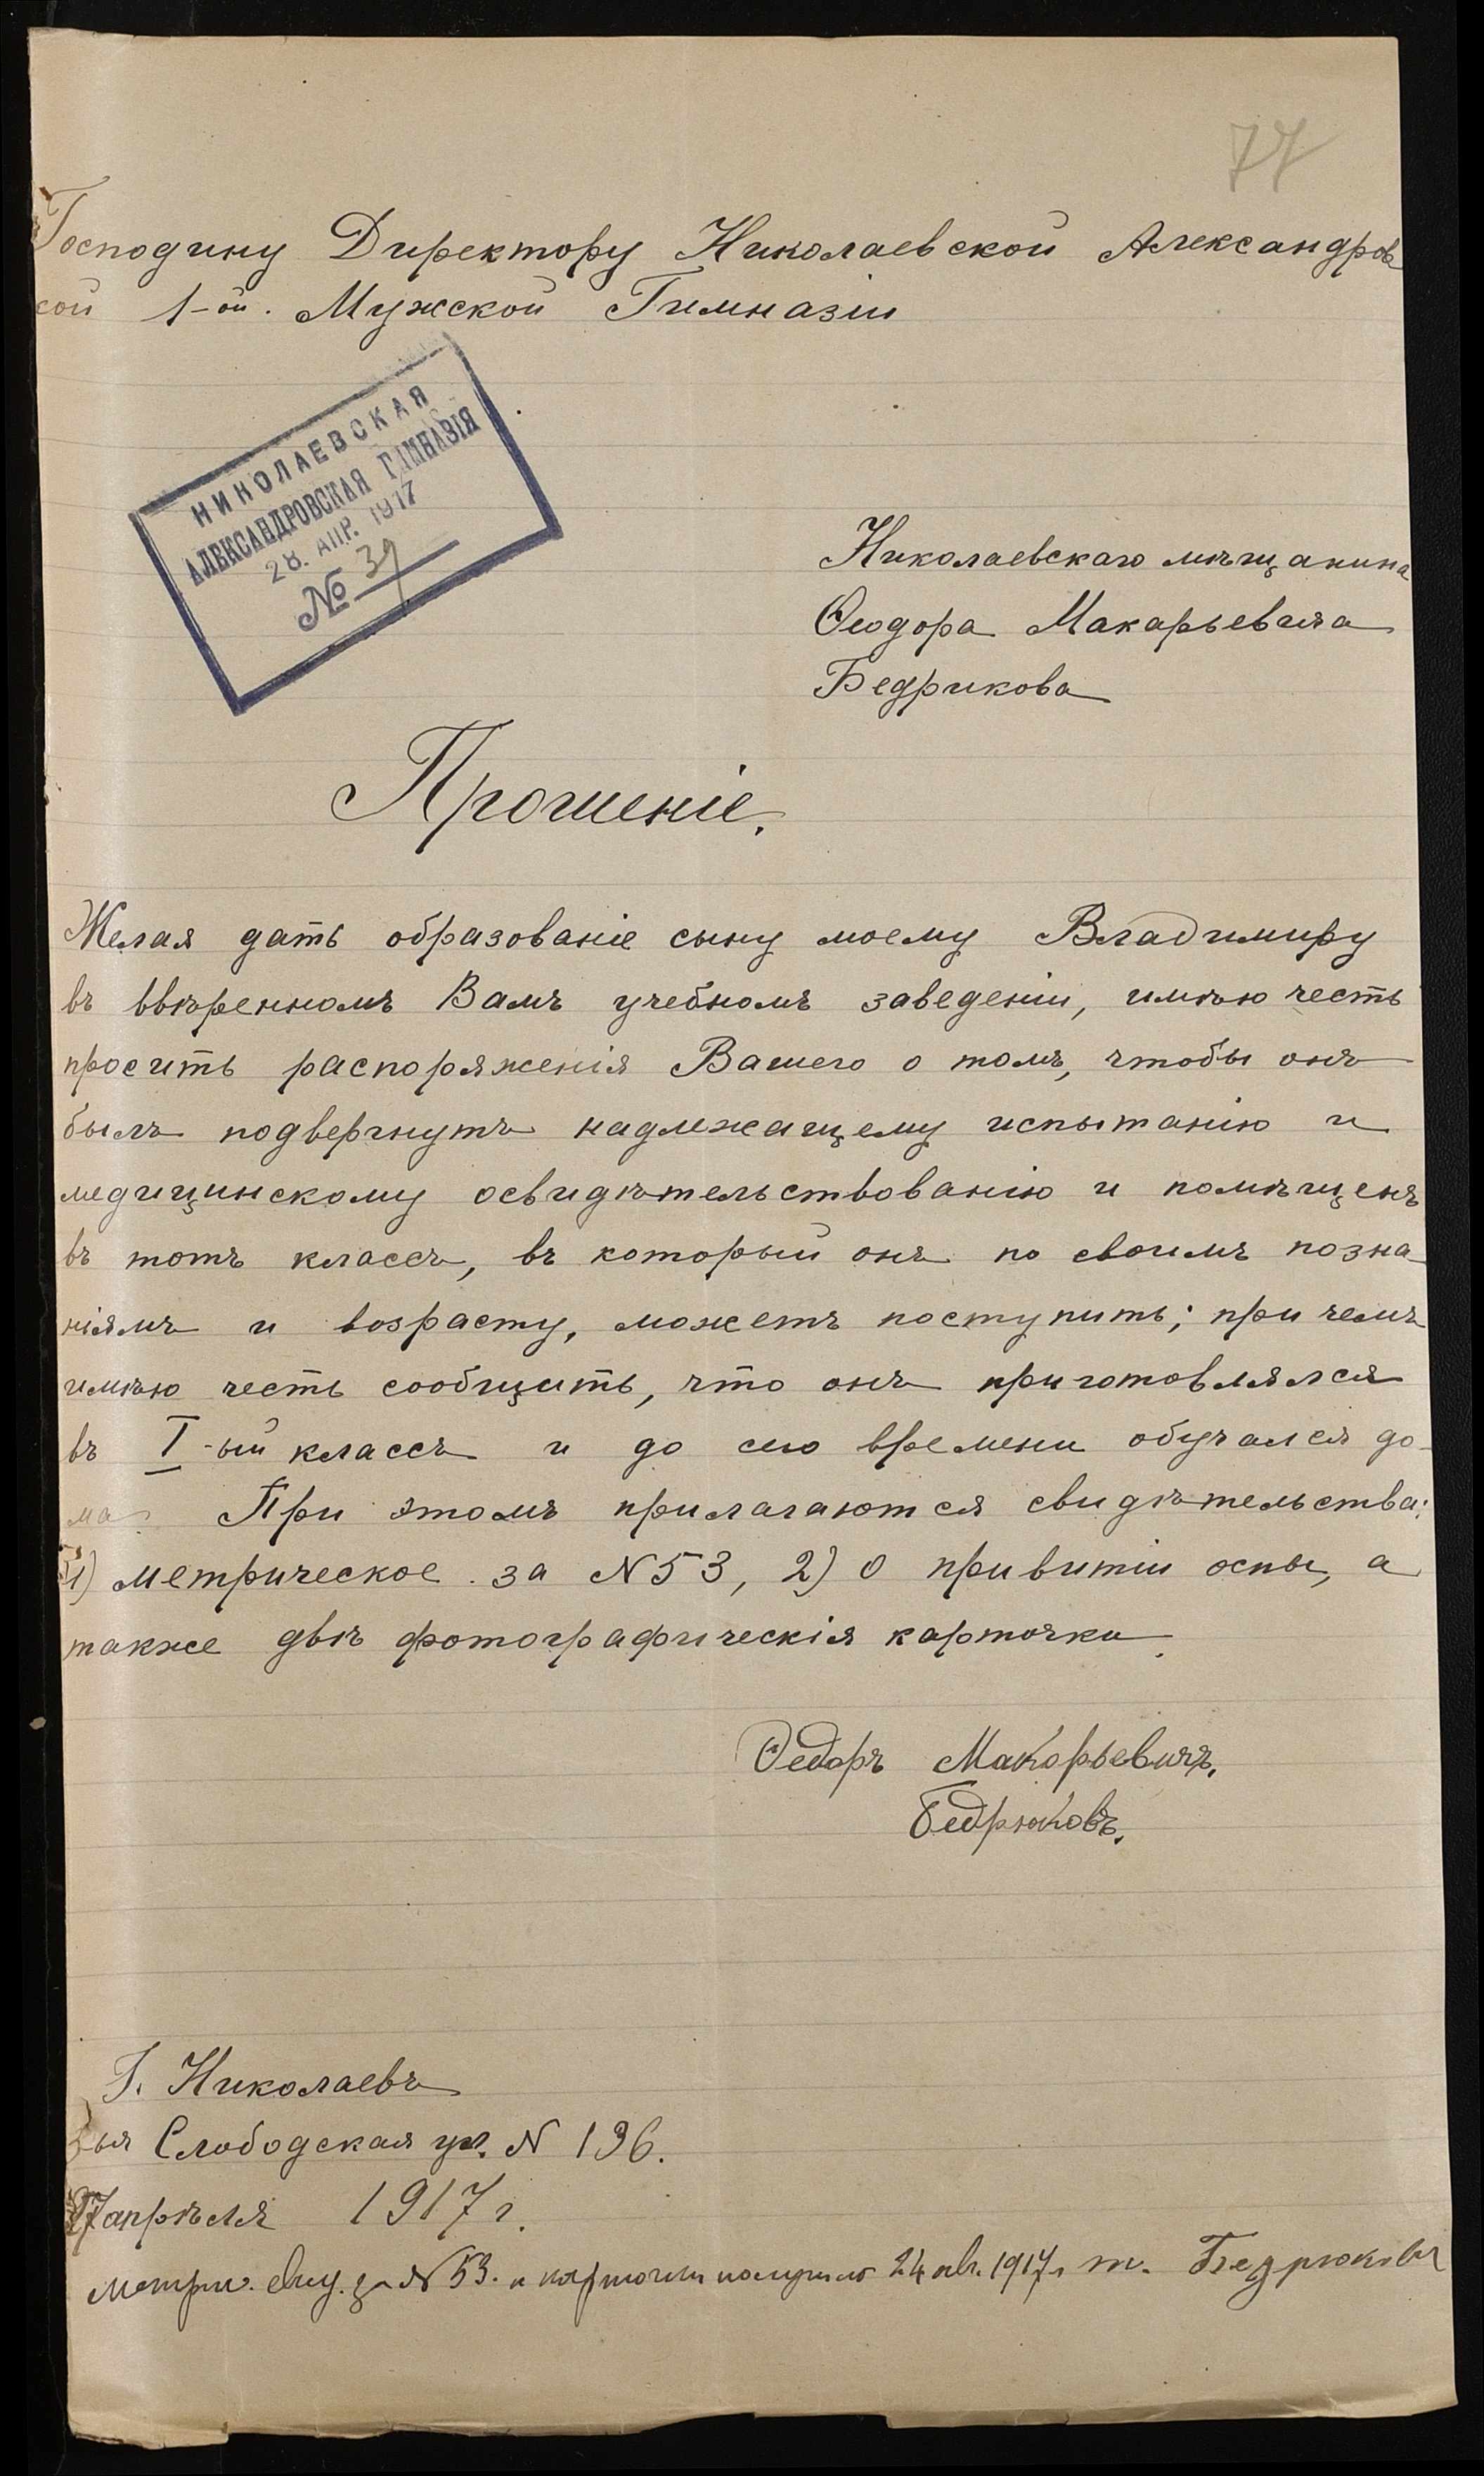 77
Господину Директору Николаевской Александров
ской 1-ой. Мужской Гимназіи
НИКОЛАЕВСКАЯ
АЛЕКСАНДРОВСКАЯ ГИМНАЗІЯ
28. АПР. 1917
№ 39
Николаевскаго мѣщанина
Ѳеодора Макарьевича
Бедрикова
Прошеніе.
Желая дать образованіе сыну моему Владимиру
въ ввѣренномъ Вамъ учебномъ заведеніи, имѣю честь
просить распоряженія Вашего о томъ, чтобы онъ
былъ подвергнутъ надлежащему испытанію и
медицинскому освидѣтельствованію и помѣщенъ
въ тотъ классъ, въ который онъ по своимъ позна
ніямъ и возрасту, можетъ поступить; при чемъ
имѣю честь сообщить, что онъ приготовлялся
въ I-ый классъ и до сего времени обучался до-
ма При этомъ прилагаются свидѣтельства:
1) метрическое за N 53, 2) о привитіи оспы, а
также двѣ фотографическія карточки.
Ѳедоръ Макорьевичъ.
Бедрюковъ.
Г. Николаевъ
Слободская ул. N 196.
27 апрѣля 1917 г.
Метрич. свид. за N 53. и карточки получилъ 24 авг. 1917 г. Бедрюковъ